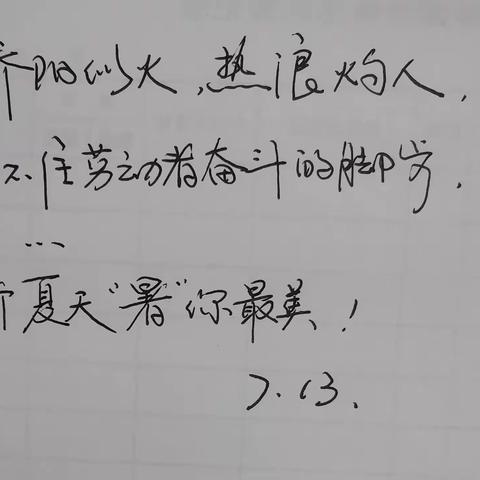 骄阳似火,热浪灼人,
不住劳动者奋斗的脚步,
...
个夏天“署”你最美!
7.13.